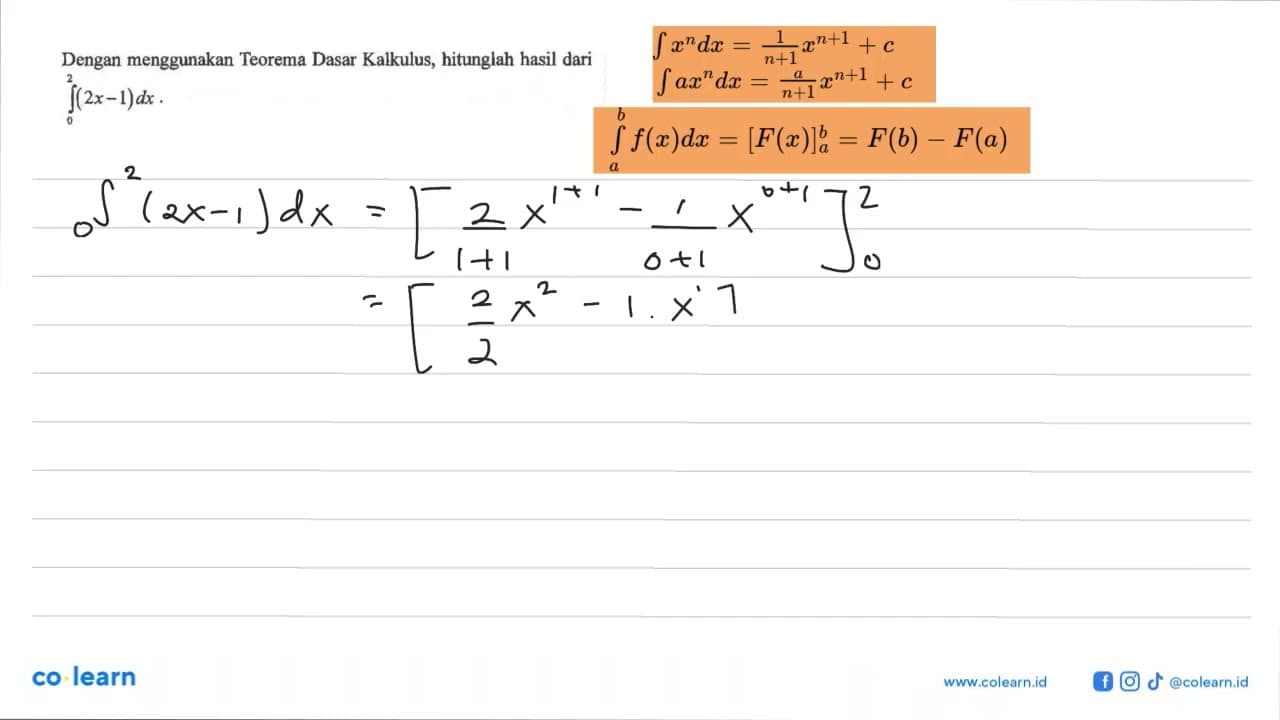 Dengan menggunakan Teorema Dasar Kalkulus, hitunglah hasil dari
∫₀² (2x−1) dx .
∫ xⁿ dx = 1/(n+1) xⁿ⁺¹ + c
∫ axⁿ dx = a/(n+1) xⁿ⁺¹ + c
∫ₐᵇ f(x)dx = [F(x)]ₐᵇ = F(b) − F(a)
₀∫² (2x−1) dx = [ 2/(1+1) x¹⁺¹ − 1/(0+1) x⁰⁺¹ ]₀²
= [ 2/2 x² − 1 . x¹ ]
co learn
www.colearn.id
@colearn.id